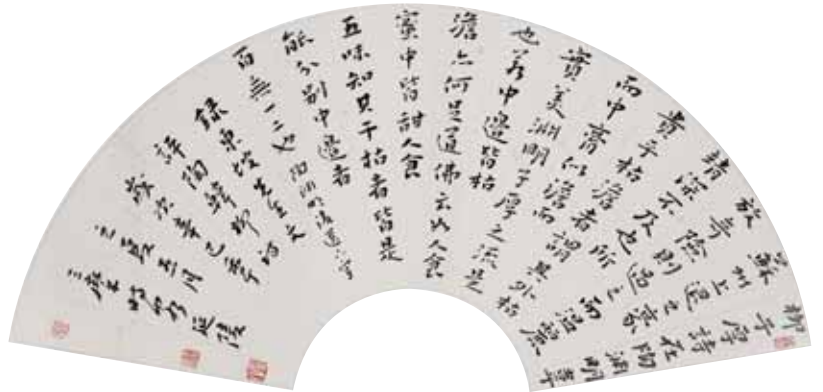 柳子厚詩在陶淵明韋
蘇州上退之豪
放奇險則過之而溫麗
靖深不及也所
貴乎枯澹者謂其外枯
而中膏似澹而
實美淵明子厚之流是
也若中邊皆枯
澹亦何足道佛云如人食
蜜中皆甜人食
五味知其干枯者皆是
能分別中邊者
百無一二也 陶淵明後遺下字
錄東坡先生文
評陶韓柳詩
歲次辛巳年